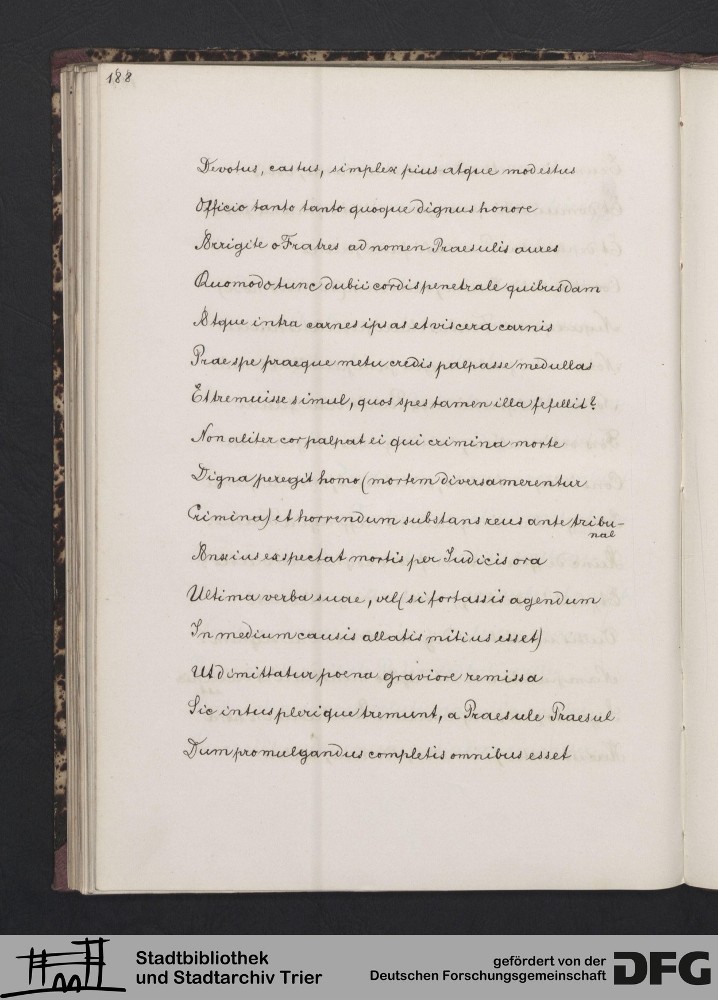 188
Devotus, castus, simplex pius atque modestus
Officio tanto tanto quoque dignus honore
Arrigite o Fratres ad nomen Praesulis aures
Quomodo tunc dubii cordis penetrale quibusdam
Atque intra carnes ipsas et viscera carnis
Prae spe praeque metu credis palpasse medullas
Et tremuisse simul, quos spes tamen illa fefellit?
Non aliter cor palpat ei qui crimina morte
Digna peregit homo (mortem diversa merentur
Crimina) et horrendum substans reus ante tribu-
nal
Anxius exspectat mortis per Iudicis ora
Ultima verba suae, vel (si fortassis agendum
In medium causis allatis mitius esset)
Ut dimittatur poena graviore remissa
Sic intus plerique tremunt, a Praesule Praesul
Dum promulgandus completis omnibus esset
Stadtbibliothek
und Stadtarchiv Trier
gefördert von der
Deutschen Forschungsgemeinschaft
DFG